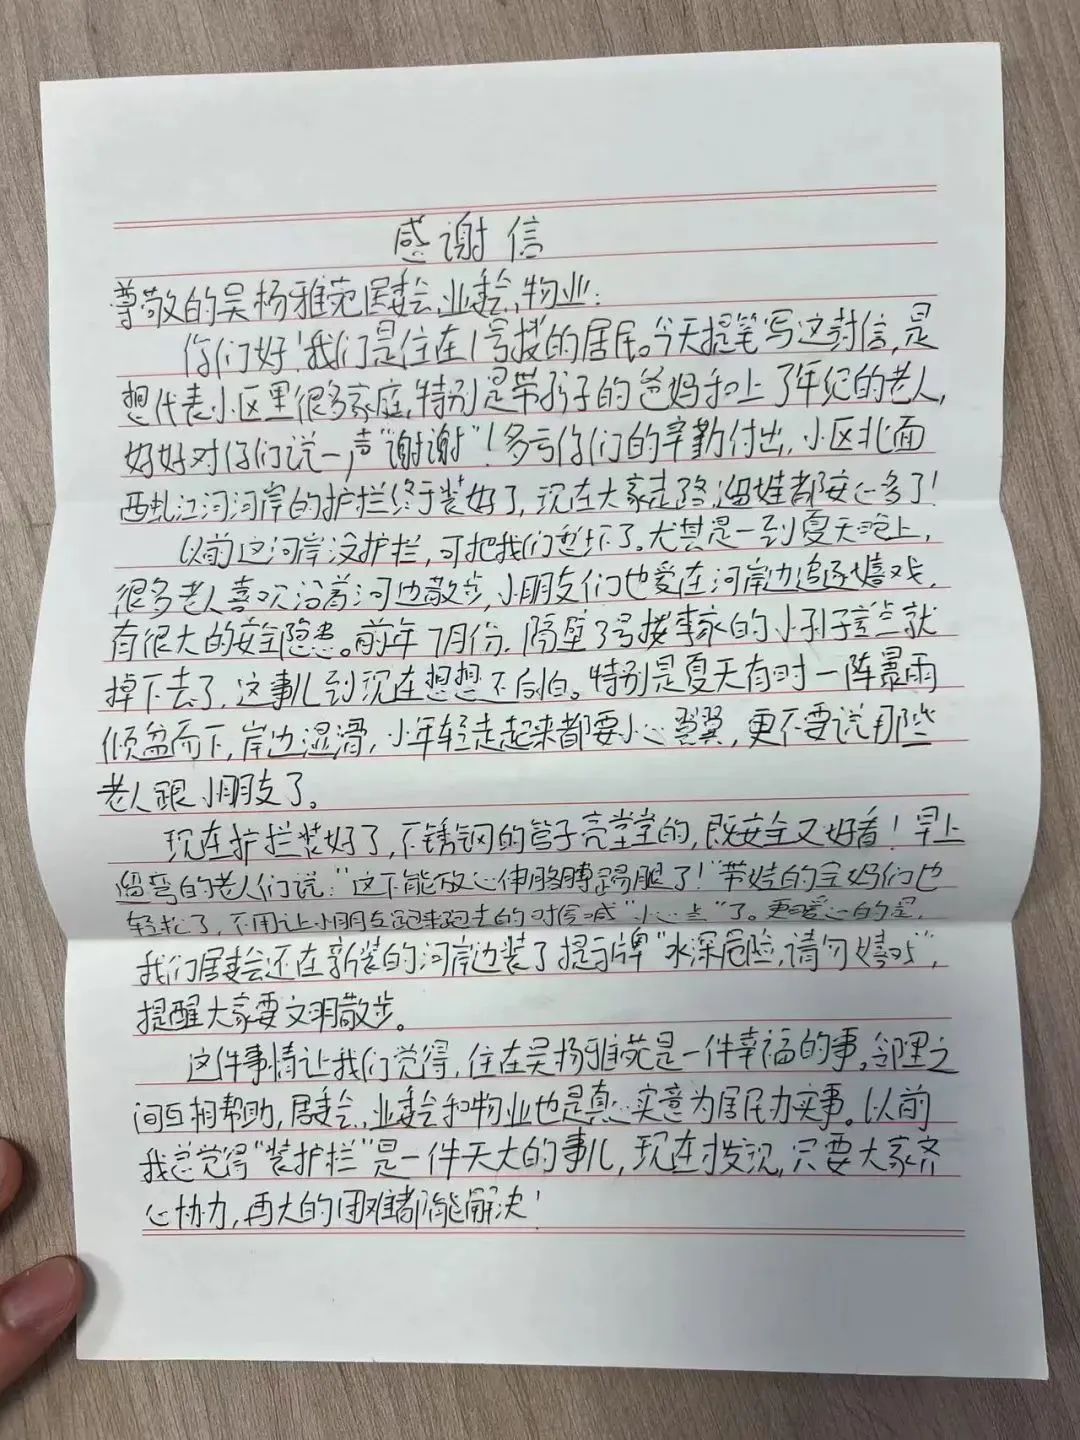 感谢信
尊敬的吴杨雅苑居委会、业委会、物业:
你们好!我们是住在1号楼的居民。今天提笔写这封信,是
想代表小区里很多家庭,特别是带孩子的爸妈和上了年纪的老人,
好好对你们说一声"谢谢"!多亏你们的辛勤付出,小区北面
西虬江河河岸的护栏终于装好了,现在大家走路、遛娃都安心多了!
以前这河岸没护栏,可把我们愁坏了。尤其是一到夏天晚上,
很多老人喜欢沿着河边散步,小朋友们也爱在河岸边追逐嬉戏,
有很大的安全隐患。前年7月份,隔壁3号楼李家的小孙子差点就
掉下去了,这事儿到现在想想不后怕。特别是夏天有时一阵暴雨
倾盆而下,岸边湿滑,小年轻走起来都要小心翼翼,更不要说那些
老人跟小朋友了。
现在护栏装好了,不锈钢的管子亮堂堂的,既安全又好看!早上
遛弯的老人们说:"这下能放心伸胳膊踢腿了!"带娃的宝妈们也
轻松了,不用让小朋友跑来跑去的时候喊"小心点"了。更暖心的是,
我们居委会还在新装的河岸边装了提示牌"水深危险,请勿嬉戏",
提醒大家要文明散步。
这件事情让我们觉得,住在吴杨雅苑是一件幸福的事。邻里之
间互相帮助,居委会、业委会和物业也是真心实意为居民办实事。以前
我总觉得"装护栏"是一件天大的事儿,现在才发现,只要大家齐
心协力,再大的困难都能解决!